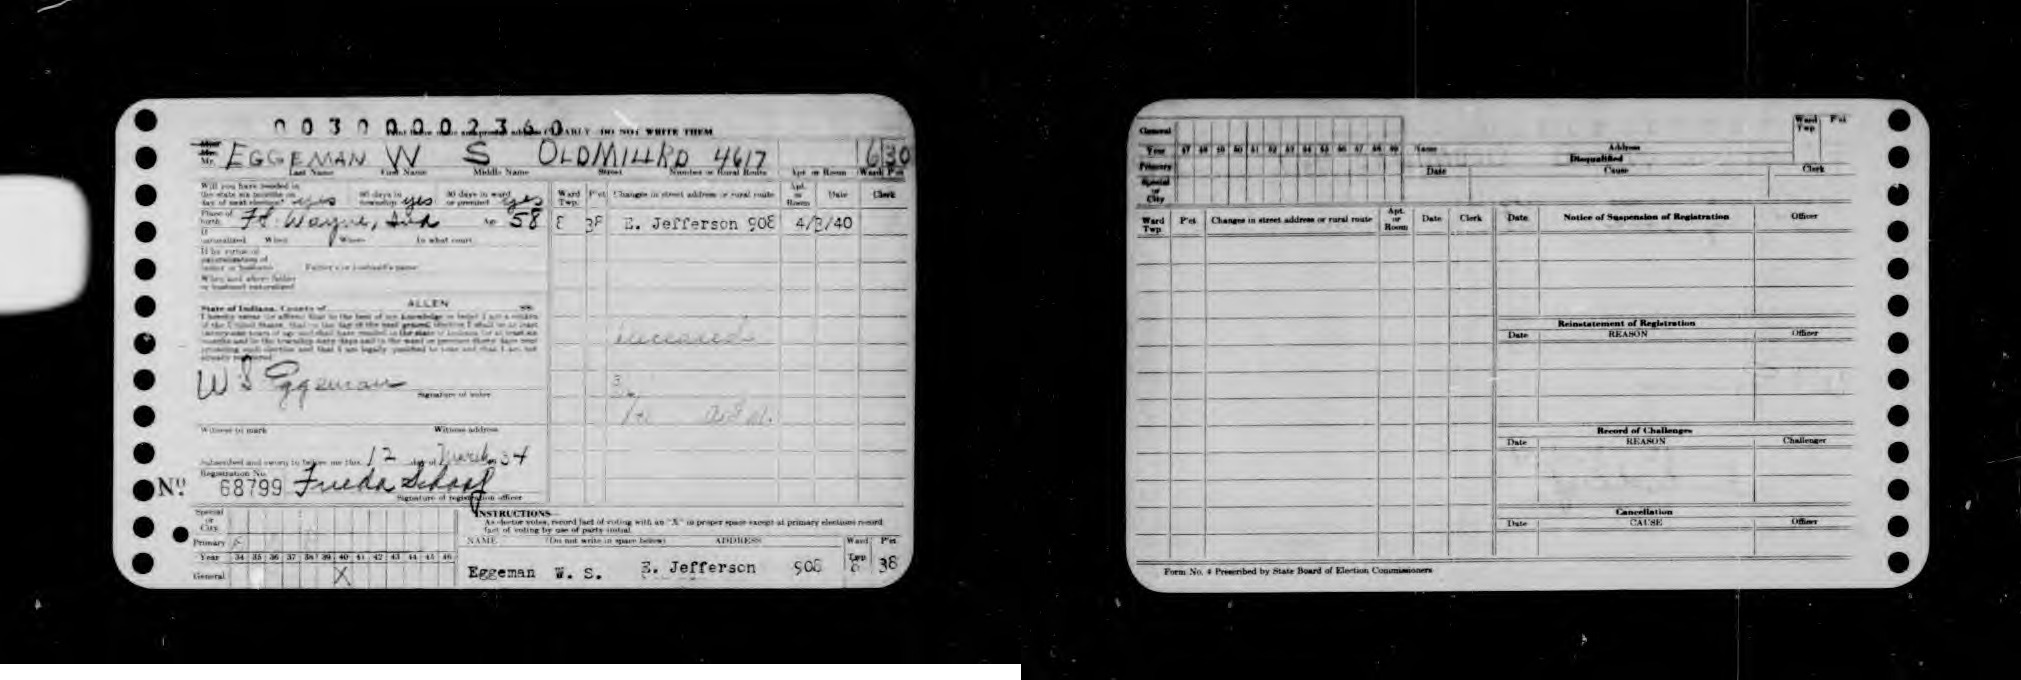 00300002360
PLEASE DO NOT WRITE THEM
Mr. EGGEMAN W S OLD MILL RD 4617 6 30
Last Name First Name Middle Name Street Number or Rural Route Apt or Room Ward P'ct
Will you have resided in
the state six months on
day of next election? yes
60 days in
township yes
30 days in ward
or precinct yes
Ward
Twp.
P'ct
Changes in street address or rural route
Apt.
or
Room
Date
Clerk
Place of
birth Ft. Wayne, Ind Age 58
8 38 E. Jefferson 908 4/3/40
If
naturalized When Where In what court
If by virtue of
naturalization of
father or husband Father's or husband's name
When and where father
or husband naturalized
State of Indiana, County of ALLEN SS:
deceased
W S Eggeman
Signature of voter
Witness to mark Witness address
Subscribed and sworn to before me this 12 day of March 34
Registration No.
No. 68799 Frieda Schaaf
Signature of registration officer
Special
or
City
Primary
Year 34 35 36 37 38 39 40 41 42 43 44 45 46
General X
INSTRUCTIONS
As elector votes, record fact of voting with an "X" in proper space except at primary elections record
fact of voting by use of party initial.
NAME (Do not write in space below) ADDRESS Ward Twp P'ct
Eggeman W. S. E. Jefferson 908 8 38
General
Year 47 48 49 50 51 52 53 54 55 56 57 58 59
Primary
Special
or
City
Name Address
Ward
Twp
P'ct
Disqualified
Date Cause Clerk
Ward
Twp.
P'ct
Changes in street address or rural route
Apt.
or
Room
Date
Clerk
Date Notice of Suspension of Registration Officer
Reinstatement of Registration
Date REASON Officer
Record of Challenges
Date REASON Challenger
Cancellation
Date CAUSE Officer
Form No. 4 Prescribed by State Board of Election Commissioners